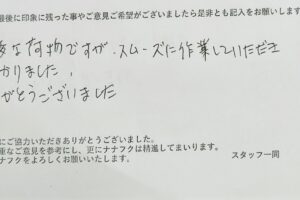 最後に印象に残った事やご意見ご希望がございましたら是非とも記入をお願いします
な荷物ですが、スムーズに作業していただき
かりました。
がとうございました
にご協力いただきありがとうございました。
重なご意見を参考にし、更にナナフクは精進してまいります。
ナナフクをよろしくお願いいたします。
スタッフ一同